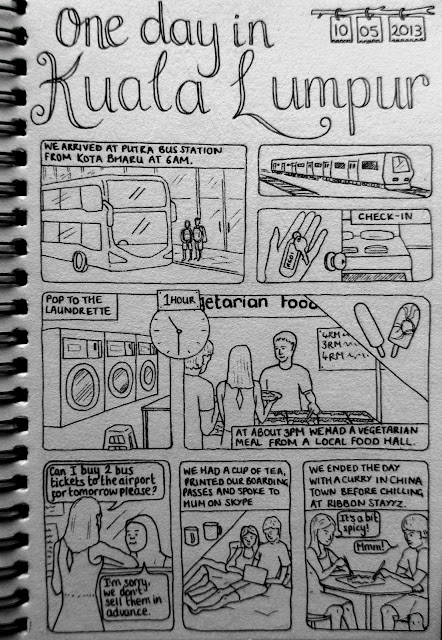 One day in
Kuala Lumpur
10 05 2013
WE ARRIVED AT PUTRA BUS STATION
FROM KOTA BHARU AT 6AM.
CHECK-IN
POP TO THE
LAUNDRETTE
1 HOUR
getarian Food
4RM
3RM
4RM
AT ABOUT 3PM WE HAD A VEGETARIAN
MEAL FROM A LOCAL FOOD HALL.
Can I buy 2 bus
tickets to the airport
for tomorrow please?
I'm sorry,
we don't
sell them in
advance.
WE HAD A CUP OF TEA,
PRINTED OUR BOARDING
PASSES AND SPOKE TO
MUM ON SKYPE
WE ENDED THE DAY
WITH A CURRY IN CHINA
TOWN BEFORE CHILLING
AT RIBBON STAYZ.
It's a bit
spicy!
Mmm!